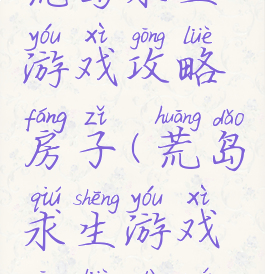 yóu xì gōng lüè
游戏攻略
fáng zǐ huāng dǎo
房子(荒岛
qiú shēng yóu xì
求生游戏